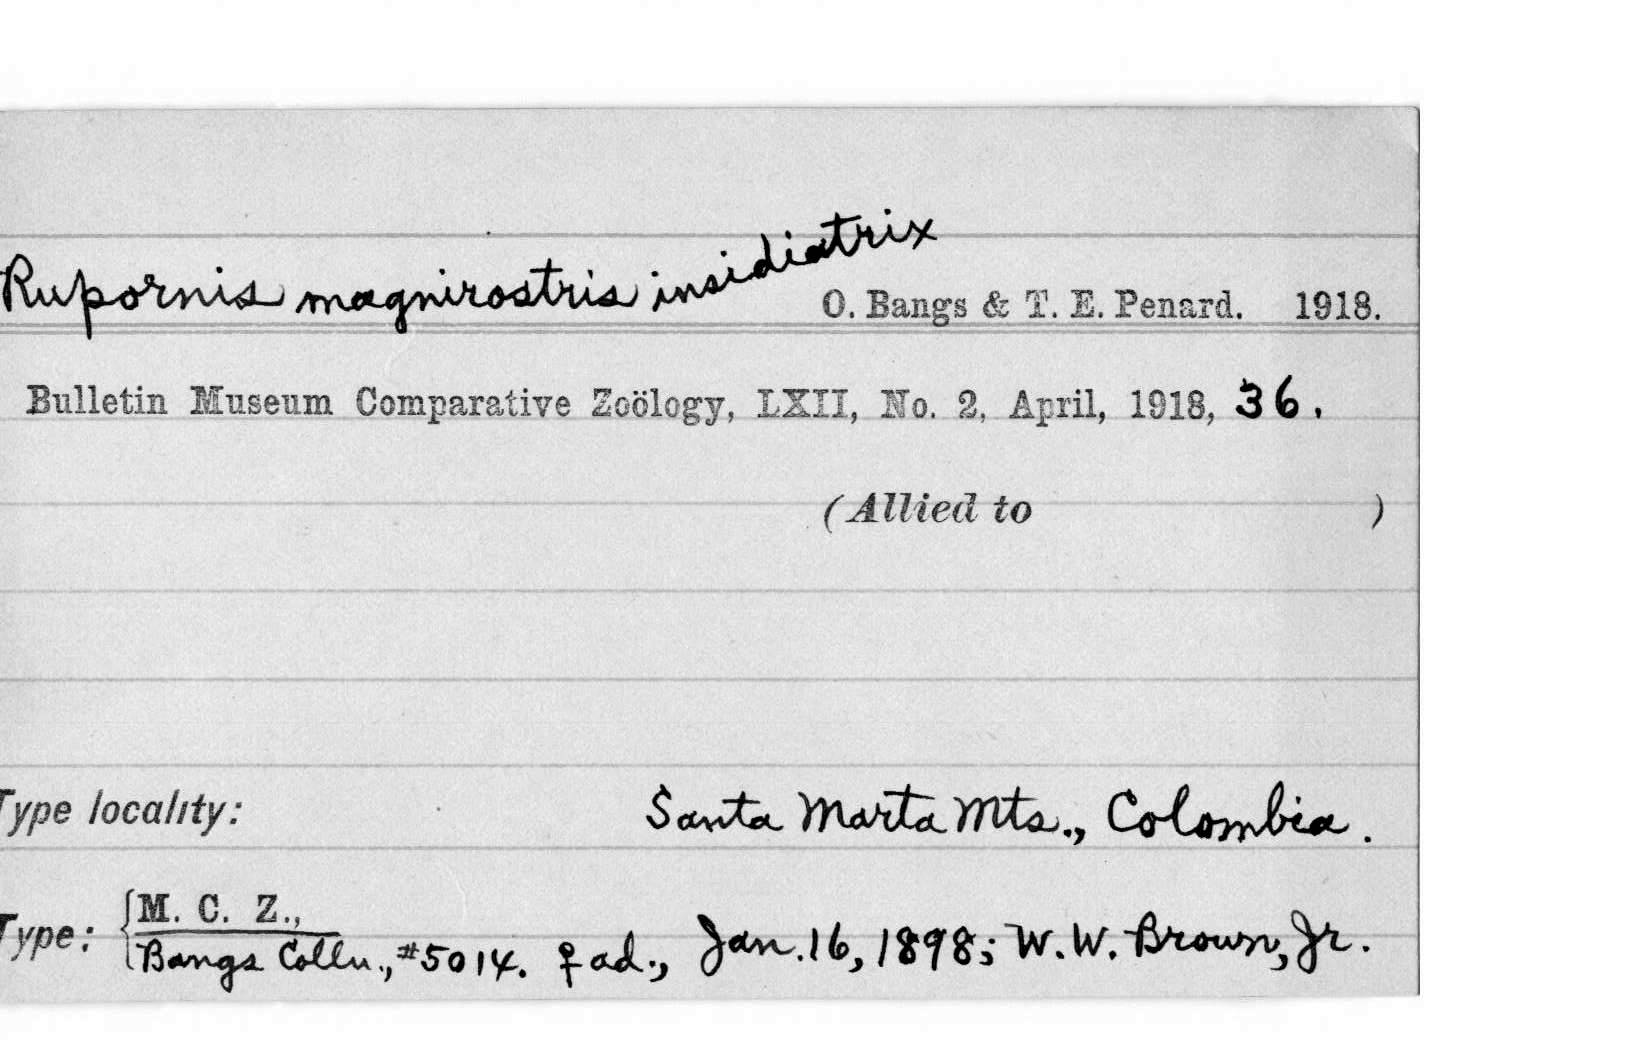 Rupornis magnirostris insidiatrix
O. Bangs & T. E. Penard. 1918.
Bulletin Museum Comparative Zoölogy, LXII, No. 2, April, 1918, 36.
(Allied to )
Type locality: Santa Marta Mts., Colombia.
Type: { M. C. Z.,
Bangs Colln., #5014. ♀ ad., Jan. 16, 1898; W. W. Brown, Jr.